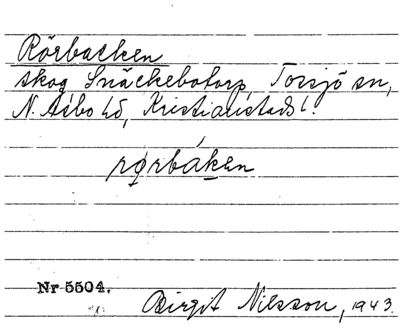 Rörbacken
skog Snäckebotorp, Torsjö sn,
N. Åsbo hd, Kristianstads l.
rørbáken
Nr 5504.
Birgit Nilsson, 1943.